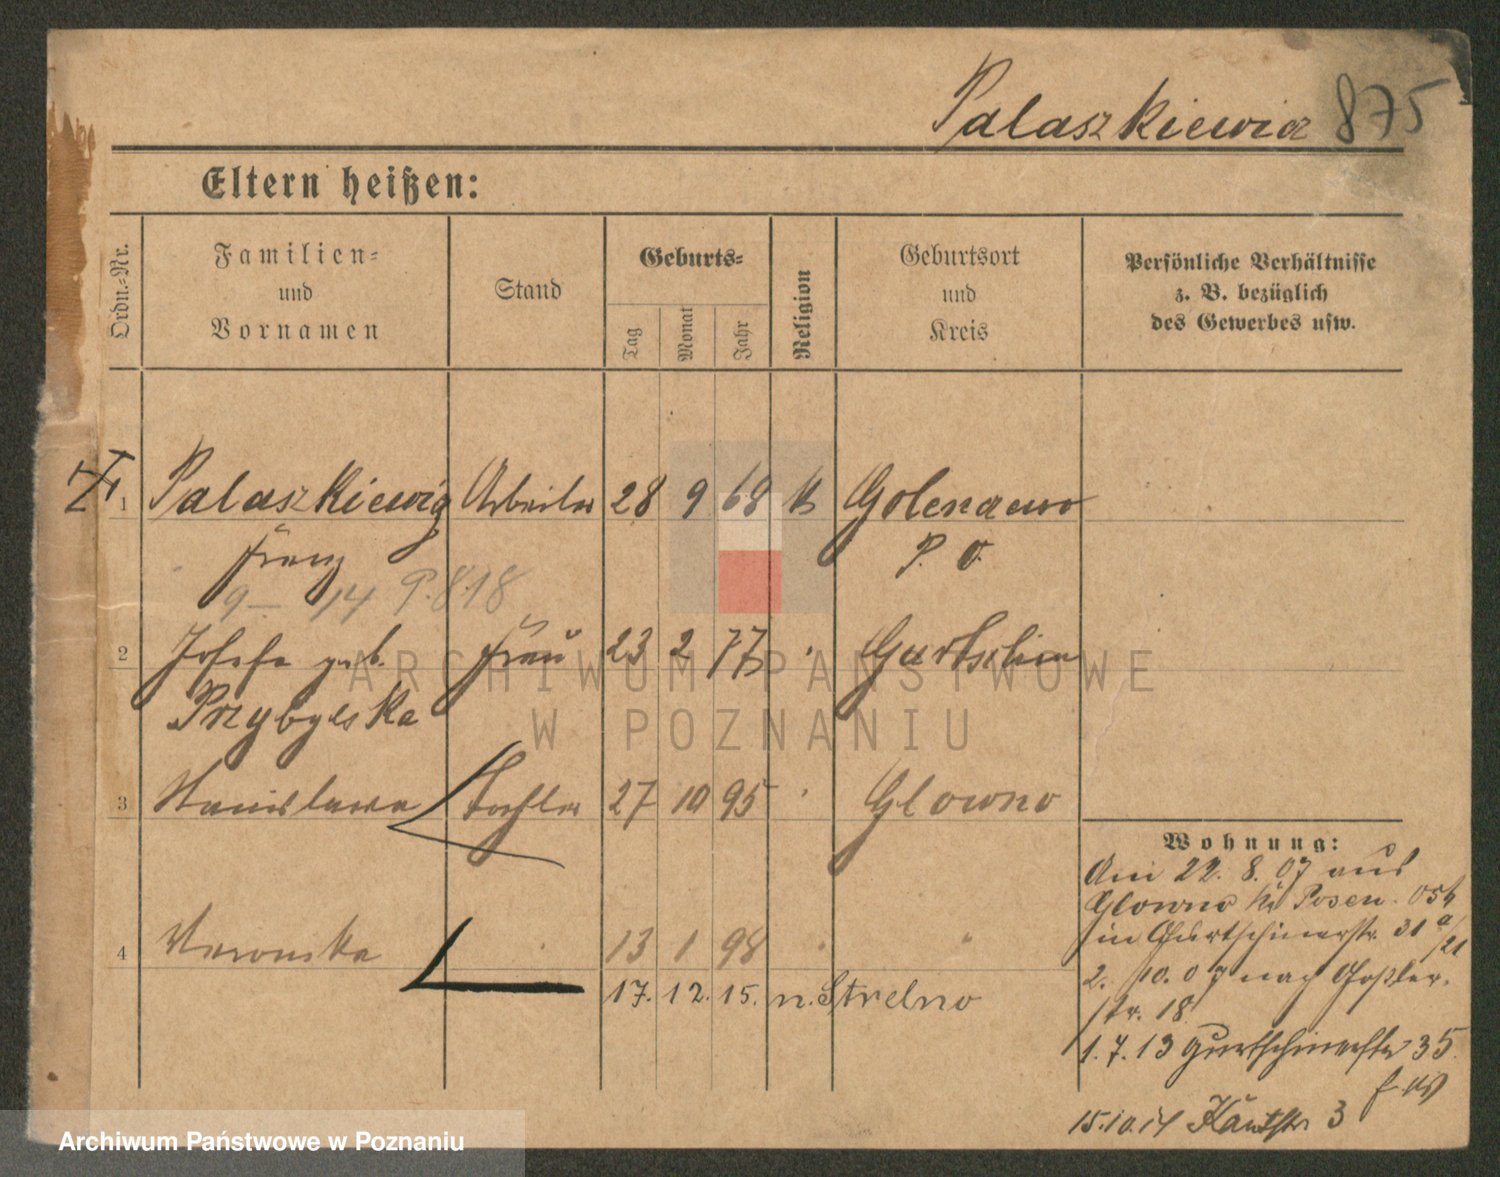 Palaszkiewicz 875
Eltern heißen:
Ordn.-Nr.
Familien-
und
Vornamen
Stand
Geburts-
Tag
Monat
Jahr
Religion
Geburtsort
und
Kreis
Persönliche Verhältnisse
z. B. bezüglich
des Gewerbes usw.
1 Palaszkiewicz Arbeiter 28 9 68 k Golenczewo
Franz P. O.
9 14 P. 8.18
2 Josefa geb. Frau 23 2 77 " Gurtschin
Przybylska
3 Stanislawa Tochter 27 10 95 " Glowno
4 Veronika " 13 1 98 " "
17. 12. 15. n. Strelno
Wohnung:
Am 22. 8. 07 aus
Glowno Kr Posen. Ost
in Gurtschinerstr. 31 a/21
2. 10. 07 nach Goßler-
str. 18
1. 7. 13 Gurtschinerstr 35
15.10.14 Kantstr 3
ARCHIWUM PAŃSTWOWE
W POZNANIU
Archiwum Państwowe w Poznaniu